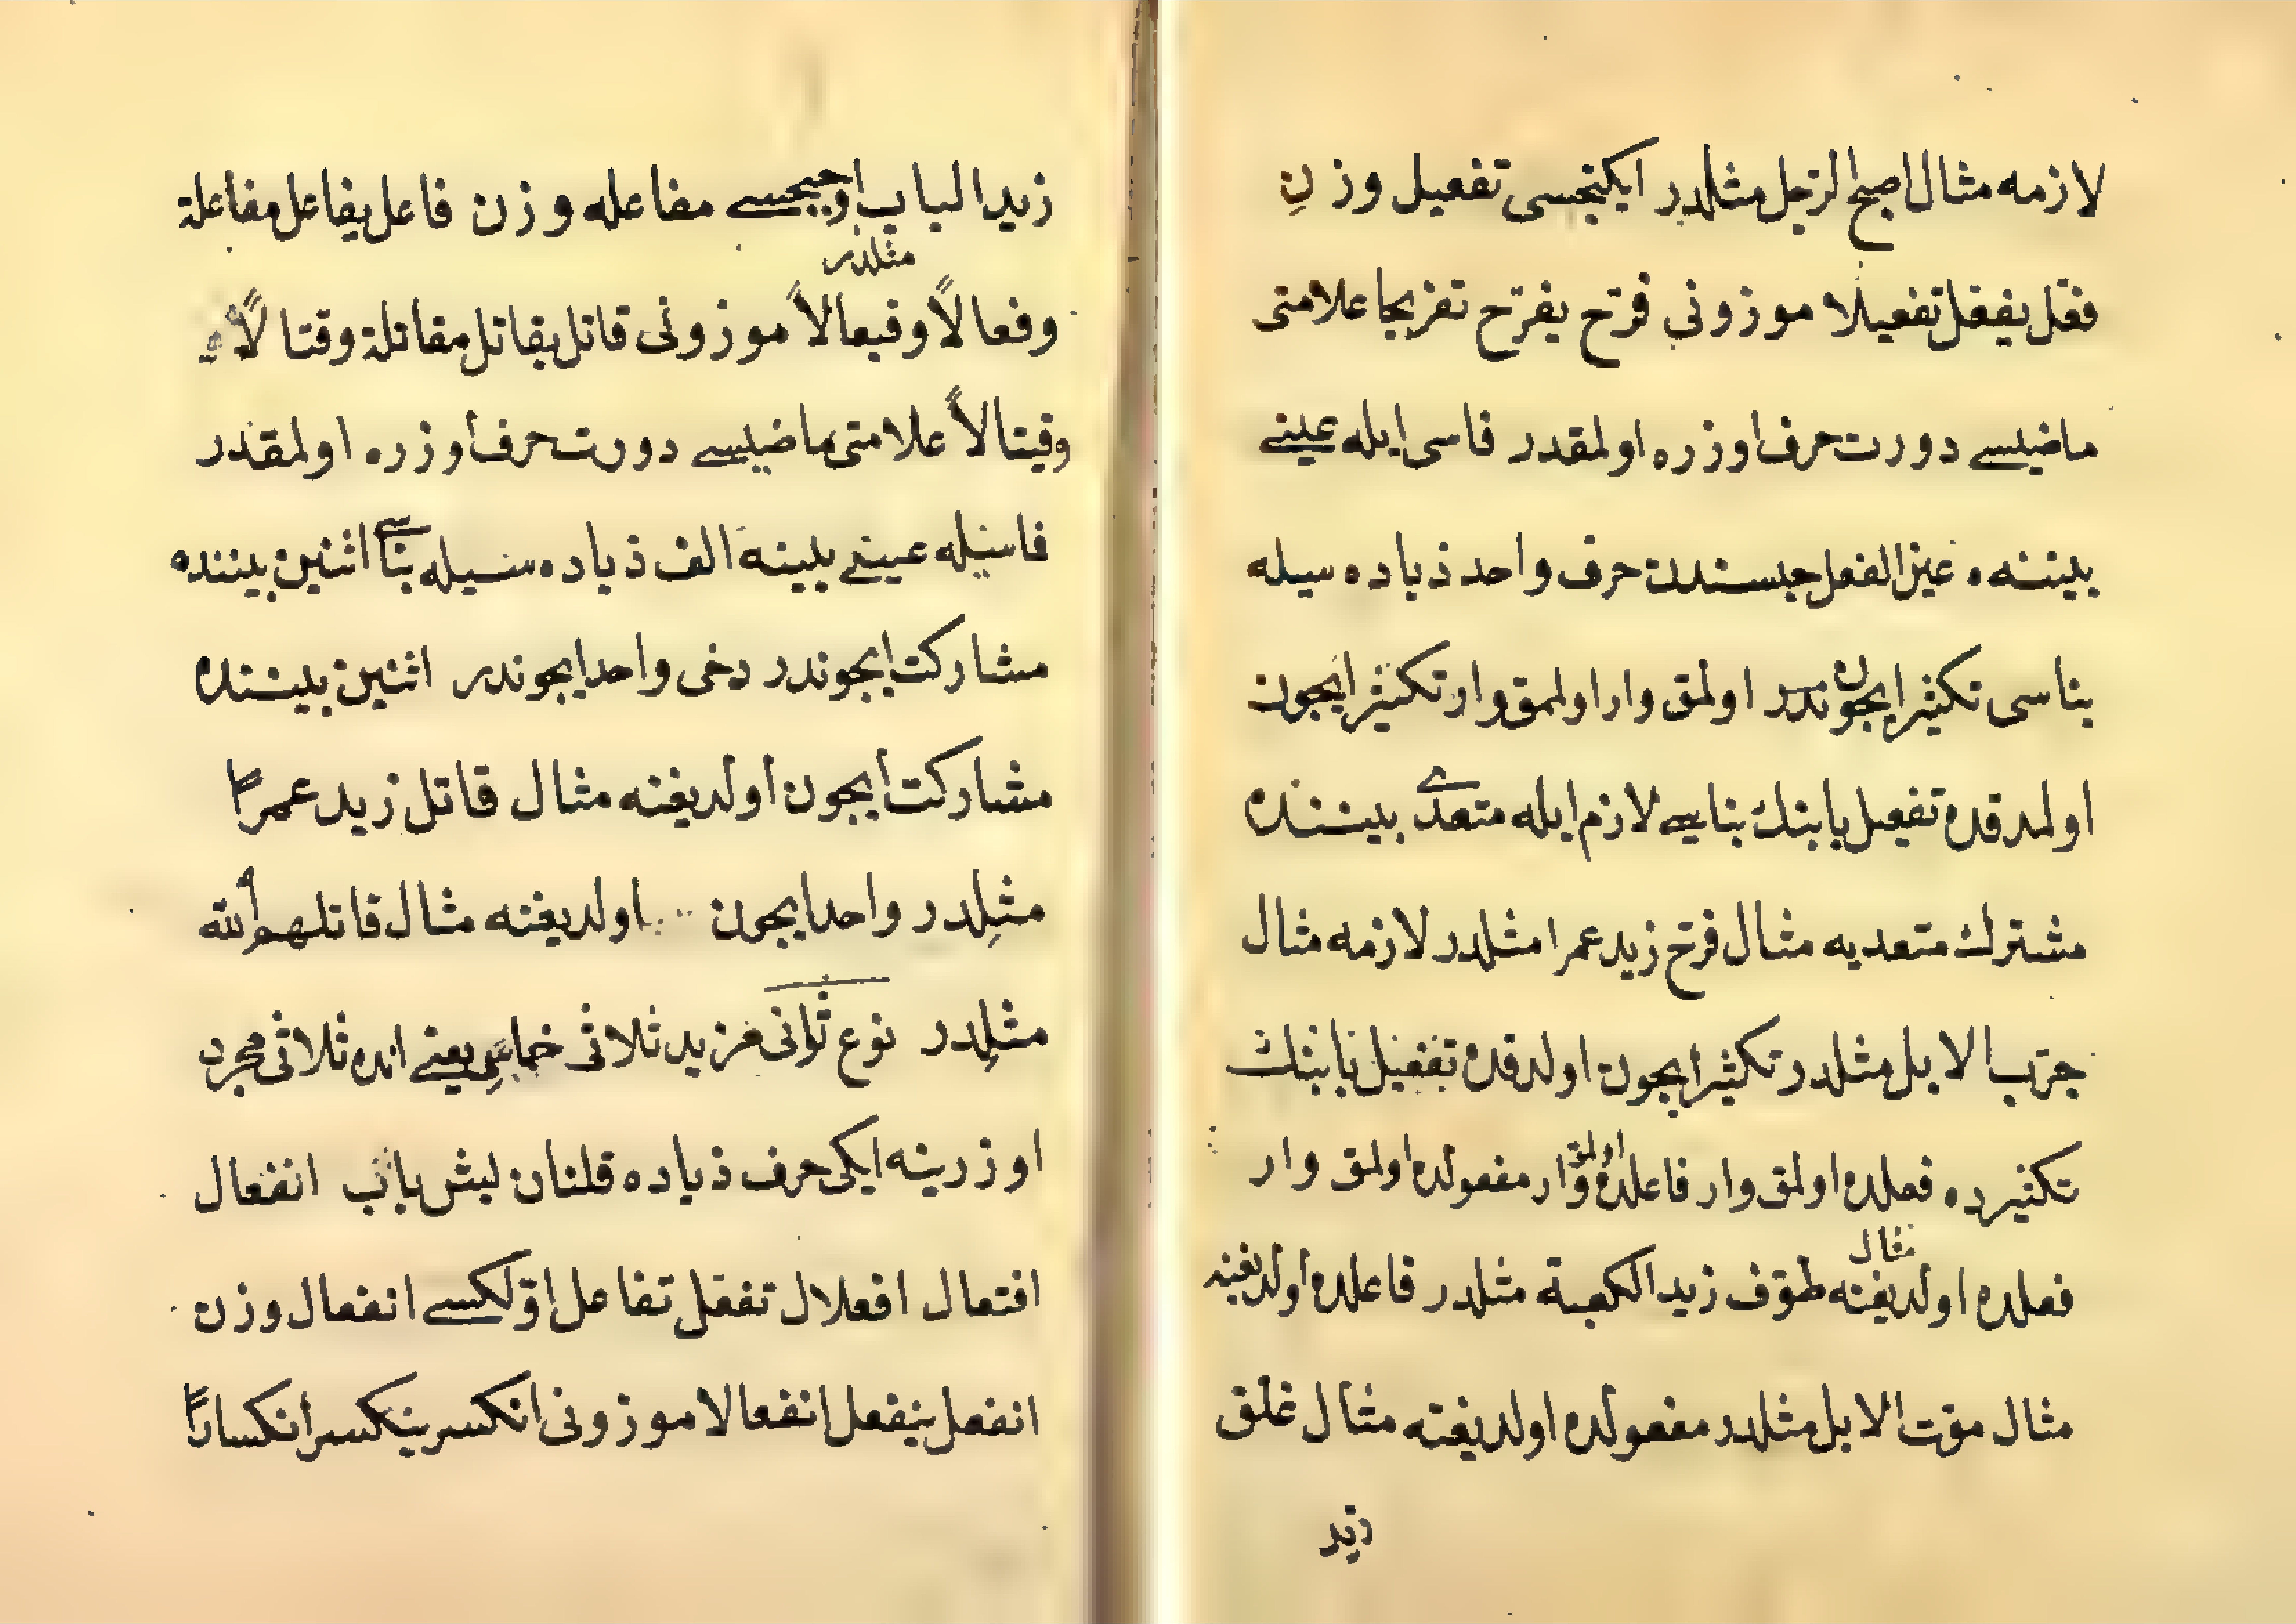 لازمه مثال اصبح الرّجل مثلدر ايكنجسى تفعيل وزنِ
فعّل يفعّل تفعيلا موزونى فرّح يفرّح تفريجا علامتى
ماضيسے دورت حرف اوزره اولمقدر فاسى ايله عينے
بيننه ه عين الفعل جنسندن حرف واحد زياده سيله
بناسى تكثير ايچوندر اولمق وار اولممق وار تكثير ايچون
اولمدقده تفعيل بابنك بناسے لازم ايله متعدے بيننده
مشترك متعديه مثال فرّح زيد عمرا مثلدر لازمه مثال
جرّب الابل مثلدر تكثير ايچون اولدقده تفعيل بابنك
تكثيرده فعلده اولمق وار فاعلده اولمق وار مفعولده اولمق وار
فعلده اولديغنه مثال طوّف زيد الكعبة مثلدر فاعلده اولديغنه
مثال موّت الابل مثلدر مفعولده اولديغنه مثال غلّق
زيد
زيد الباب اوجنجسے مفاعله وزن فاعل يفاعل مفاعلة
وفعالاً وفيعالاً مثلدر موزونى قاتل يقاتل مقاتلة وقتالاً
وقيتالاً علامتى ماضيسے دورت حرف اوزره اولمقدر
فاسيله عينے بيينه الف زياده سيله بناسے اثنين بيننده
مشاركت ايچوندر دخى واحد ايچوندر اثنين بيننده
مشاركت ايچون اولديغنه مثال قاتل زيد عمراً
مثلِدر واحد ايچون اولديغنه مثال قاتلهم الله
مثلِدر نوع ثانى مزيد ثلاثى خماسِى يعنے انده ثلاثى مجرد
اوزرينه ايكى حرف زياده قلنان بش باب انفعال
افتعال افعلال تفعّل تفاعل اوّلكسے انفعال وزن
انفعل ينفعل انفعالا موزونى انكسر ينكسر انكساراً